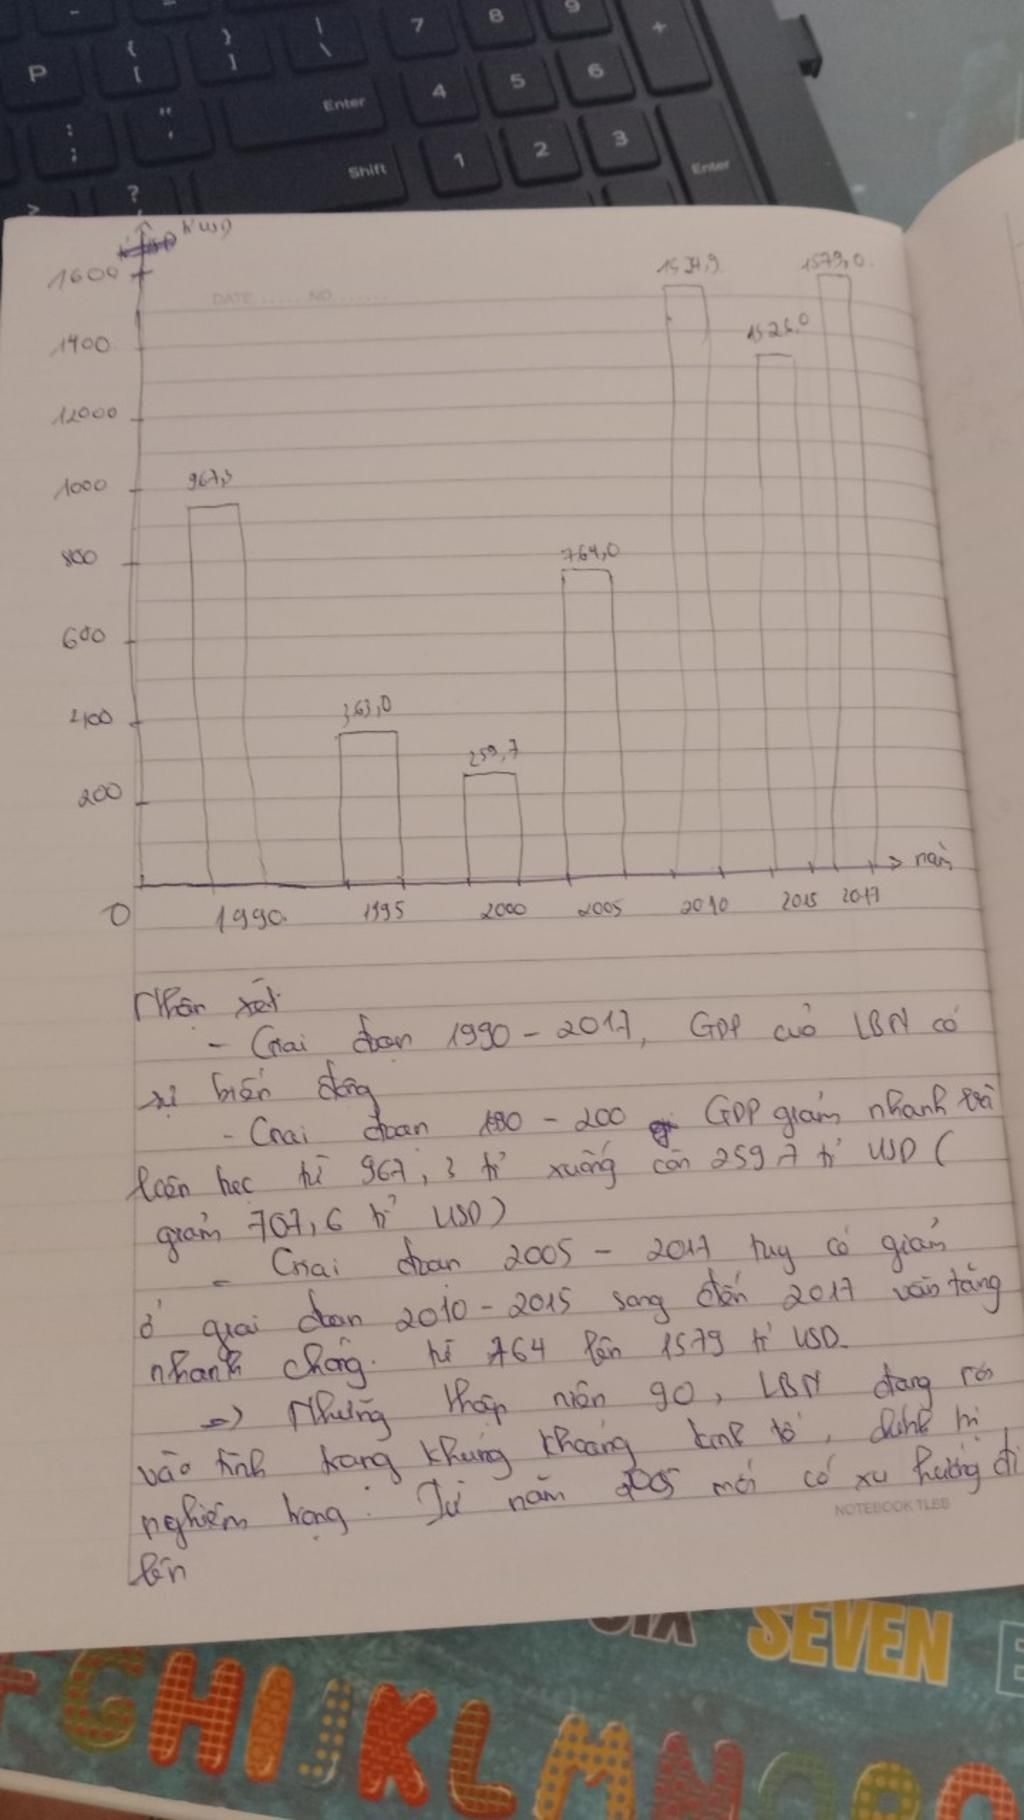 7 8 9 +
P { [ } ] | \
4 5 6
: ; " ' Enter
1 2 3
> ? Shift Enter
tỉ USD
1600
DATE NO
1400
12000
1000
800
600
400
200
0
967,3
363,0
259,7
764,0
1524,9
1326,0
1579,0
năm
1990 1995 2000 2005 2010 2015 2017
Nhận xét
- Giai đoạn 1990 - 2017, GDP của LBN có
sự biến động
- Giai đoạn 190 - 200 GDP giảm nhanh
từ 967,3 tỉ xuống còn 259,7 tỉ USD (
giảm 707,6 tỉ USD)
- Giai đoạn 2005 - 2017 tuy có giảm
ở giai đoạn 2010-2015 song đến 2017 vẫn tăng
nhanh chóng. từ 764 lên 1579 tỉ USD.
=> Những thập niên 90, LBN đang rơi
vào tình trạng khủng khoảng kinh tế, chính trị
nghiêm trọng. Từ năm 2005 mới có xu hướng đi
lên
NOTEBOOK TLBB
SIX SEVEN E
G H I J K L M N O P Q